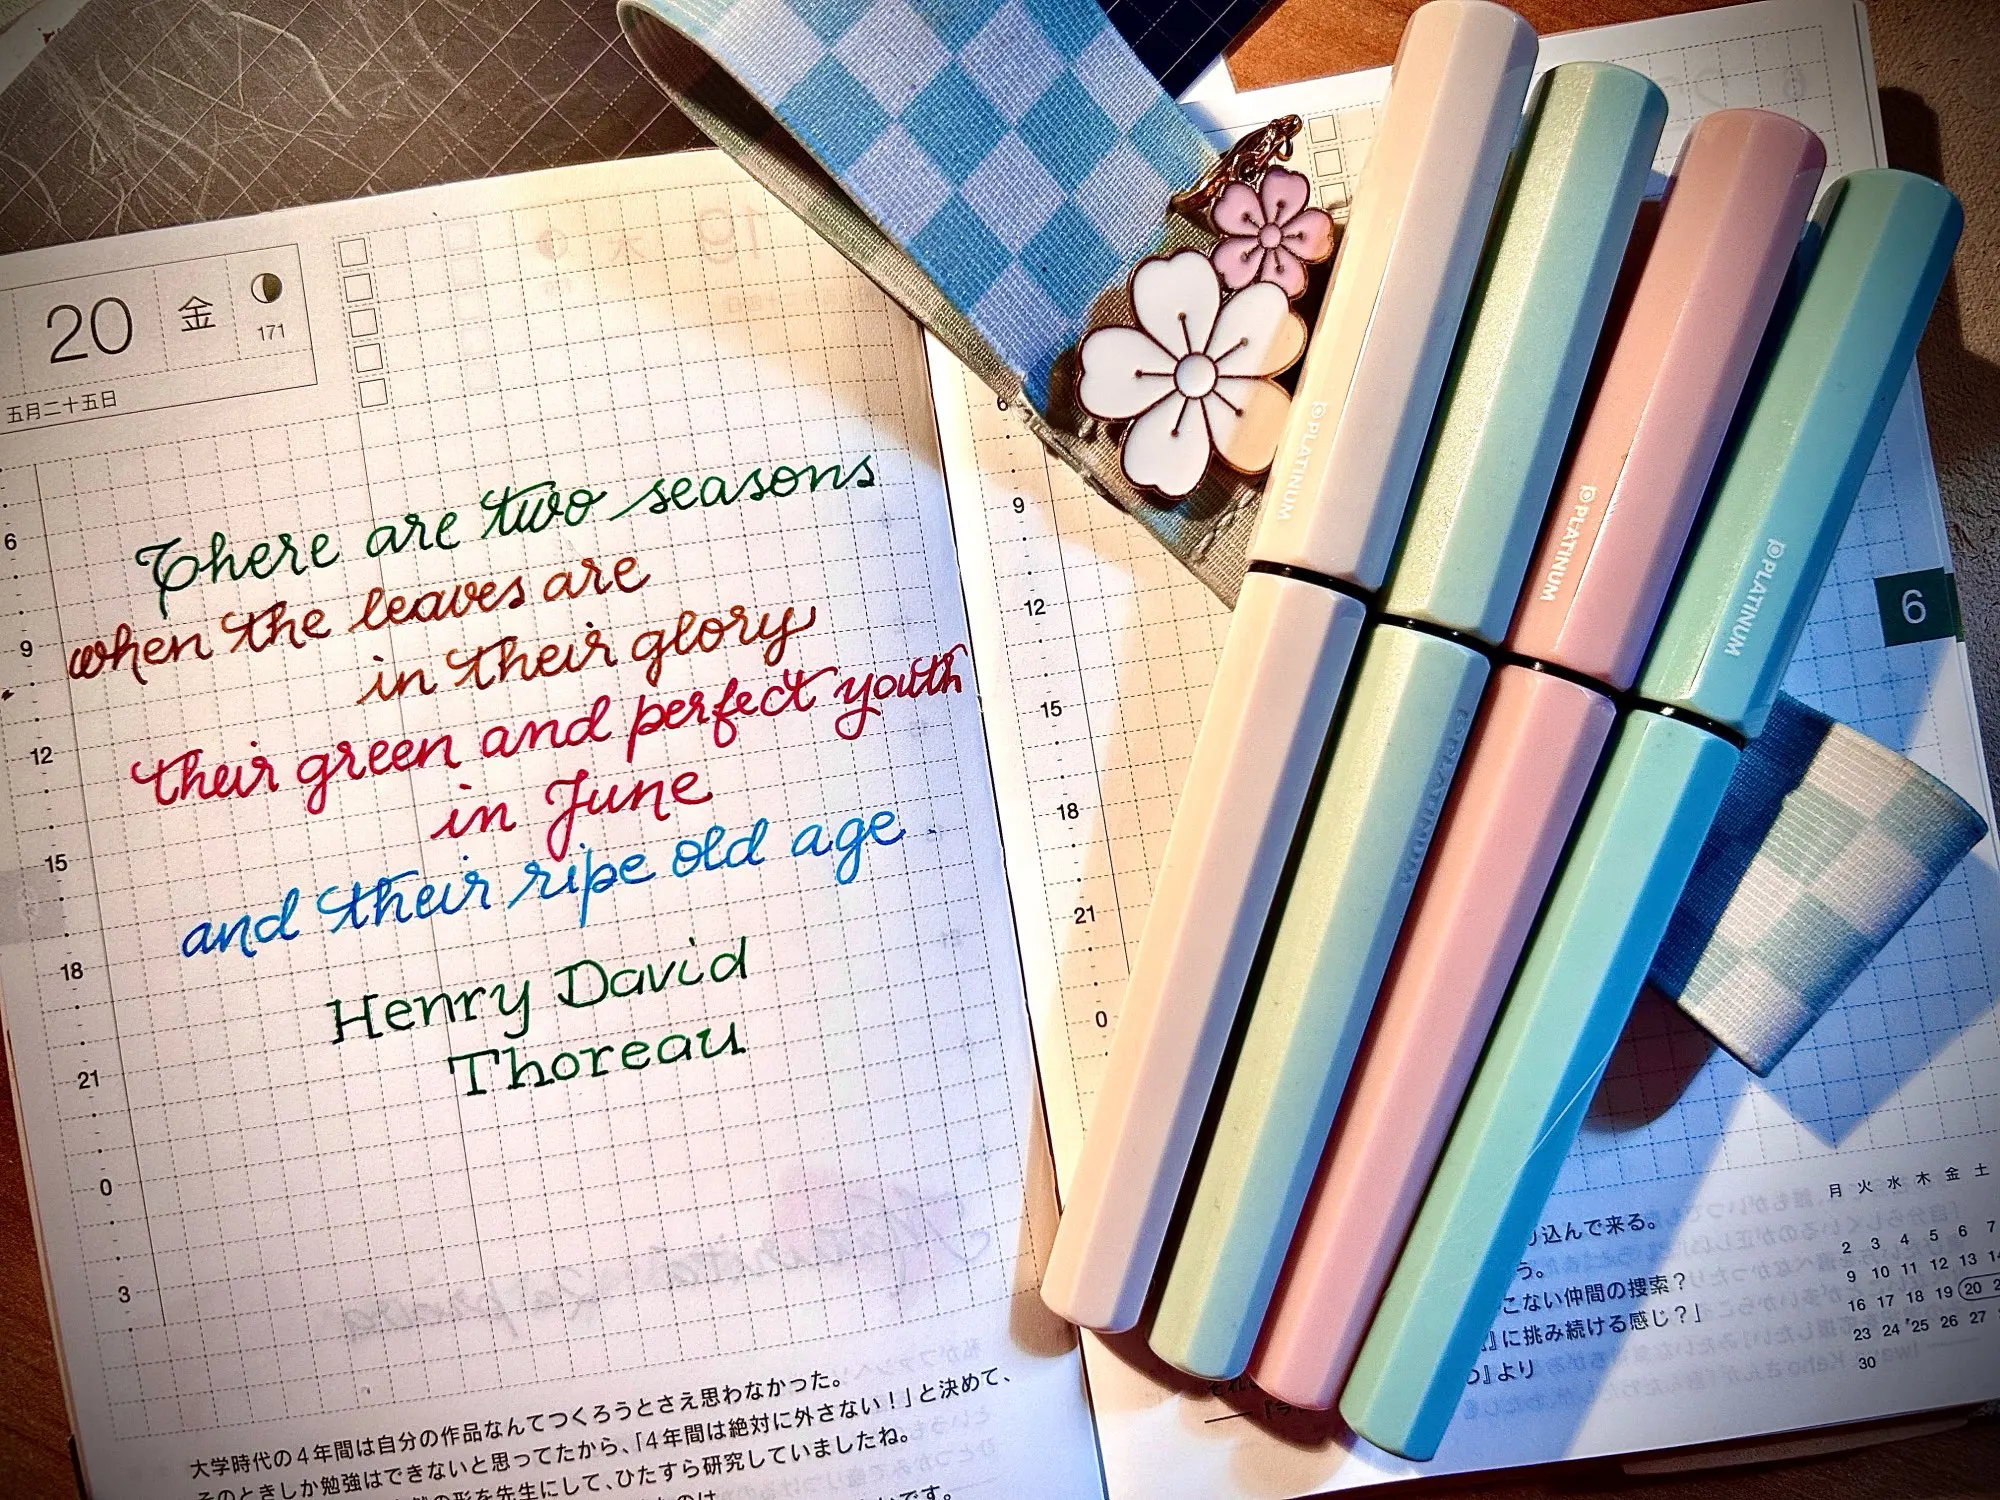 20 金
171
五月二十五日
There are two seasons
when the leaves are
in their glory
their green and perfect youth
in June
and their ripe old age
Henry David
Thoreau
6
9
12
15
18
21
0
3
大学時代の4年間は自分の作品なんてつくろうとさえ思わなかった。
そのときしか勉強はできないと思ってたから、「4年間は絶対に外さない！」と決めて、
の形を先生にして、ひたすら研究していましたね。
です。
6
9
12
15
18
21
0
PLATINUM
PLATINUM
PLATINUM
PLATINUM
6
り込んで来る。
う。
こない仲間の捜索？
』に挑み続ける感じ？」
』より
月 火 水 木 金 土
2 3 4 5 6 7
9 10 11 12 13 14
16 17 18 19 20 2
23 24 '25 26 27
30